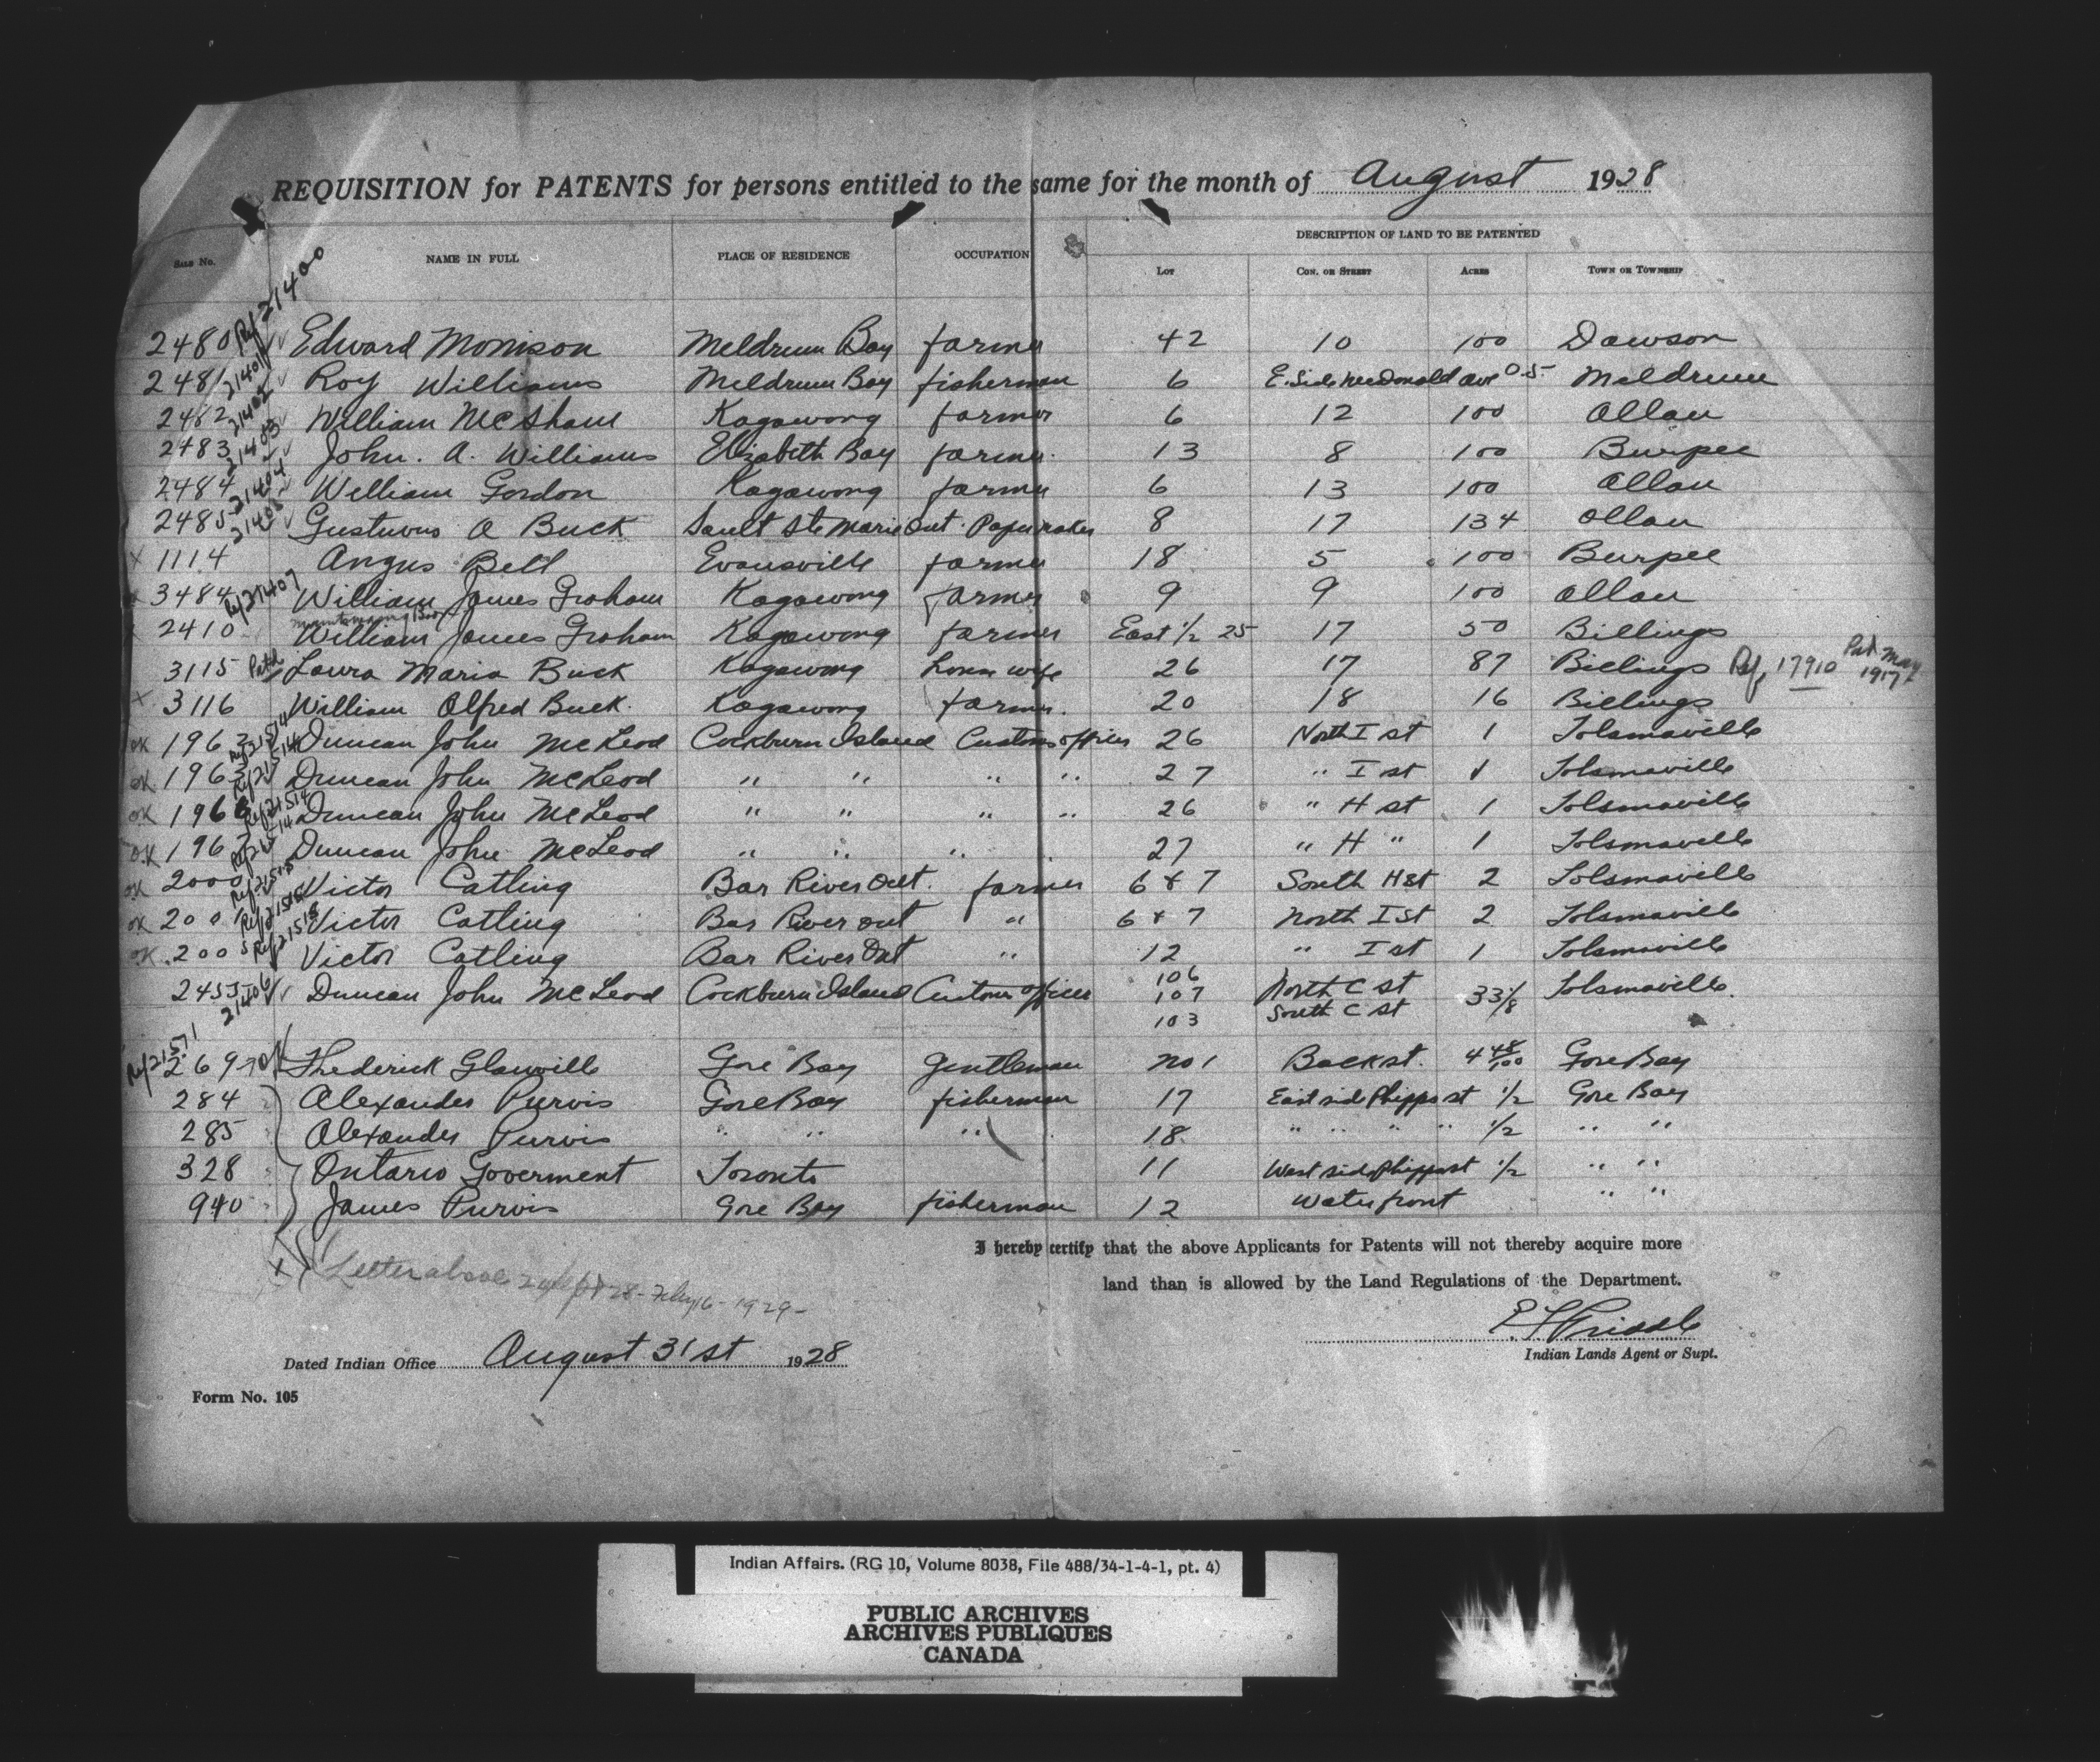 REQUISITION for PATENTS for persons entitled to the same for the month of August 1928
DESCRIPTION OF LAND TO BE PATENTED
Sale No. NAME IN FULL PLACE OF RESIDENCE OCCUPATION Lot Con. or Street Acres Town or Township
Ref 21400
2480 Edward Morrison Meldrum Bay farmer 42 10 100 Dawson
2481 21401 Roy Williams Meldrum Bay fisherman 6 E. Side McDonald ave 0.5 Meldrum
2482 21402 William McShane Kagawong farmer 6 12 100 Allan
2483 21403 John. A. Williams Elizabeth Bay farmer 13 8 100 Burpee
2484 21404 William Gordon Kagawong farmer 6 13 100 Allan
2485 21405 Gustuvus A Buck Sault Ste Marie Ont. Papermaker 8 17 134 Allan
x 1114 Angus Bell Evansville farmer 18 5 100 Burpee
x 3484 Ref 21407 William James Graham Kagawong farmer 9 9 100 Allan
2410 William James Graham Kagawong farmer East 1/2 25 17 50 Billings
3115 Patd Laura Maria Buck Kagawong House wife 26 17 87 Billings Ref. 17910 Pat May 1917
x 3116 William Alfred Buck. Kagawong farmer. 20 18 16 Billings
OK 1962 Ref 21514 Duncan John McLeod Cockburn Island Customs officer 26 North I st 1 Tolsmaville
OK. 1963 Ref 21514 Duncan John McLeod " " " " 27 " I st 1 Tolsmaville
OK 1966 Ref 21514 Duncan John McLeod " " " " 26 " H st 1 Tolsmaville
OK 1967 Ref 21514 Duncan John McLeod " " " 27 " H " 1 Tolsmaville
OK 2000 Ref 21515 Victor Catling Bar River Ont. farmer 6 & 7 South H st 2 Tolsmaville
OK 2001 Ref 21515 Victor Catling Bar River Ont " 6 & 7 North I st 2 Tolsmaville
OK. 2005 Ref 21515 Victor Catling Bar River Ont " 12 " I st 1 Tolsmaville
2455 21406 Duncan John McLeod Cockburn Island Customs officer 106 107 103 North C st South C st 33 1/8 Tolsmaville.
Ref 21571
269 OK Frederick Glanville Gore Bay Gentleman No 1 Back st. 4 48/100 Gore Bay
284 Alexander Purvis Gore Bay fisherman 17 East side Phipps st 1/2 Gore Bay
285 Alexander Purvis " " " 18 " " " " 1/2 " "
328 Ontario Goverment Toronto 11 West side Phipps st 1/2 " "
940 James Purvis Gore Bay fisherman 12 Water front " "
I hereby certify that the above Applicants for Patents will not thereby acquire more
land than is allowed by the Land Regulations of the Department.
x Letter 28- Feby 16- 1929-
Indian Lands Agent or Supt.
Dated Indian Office August 31st 1928
Form No. 105
Indian Affairs. (RG 10, Volume 8038, File 488/34-1-4-1, pt. 4)
PUBLIC ARCHIVES
ARCHIVES PUBLIQUES
CANADA